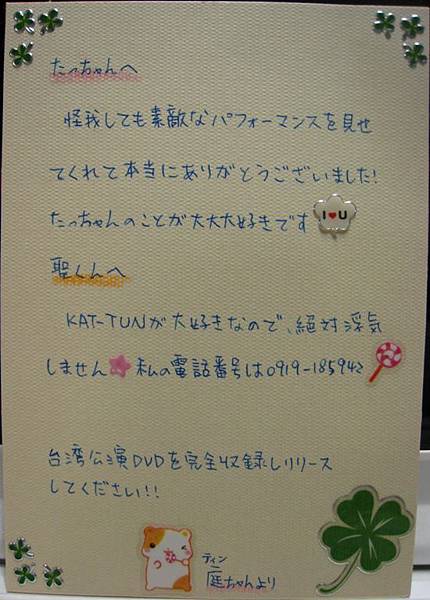 たっちゃんへ
怪我しても素敵なパフォーマンスを見せ
てくれて本当にありがとうございました!
たっちゃんのことが大大大好きです I♥U
聖くんへ
KAT-TUNが大好きなので、絶対浮気
しません 私の電話番号は0919-185942
台湾公演DVDを完全収録しリリース
してください!!
ティン
庭ちゃんより